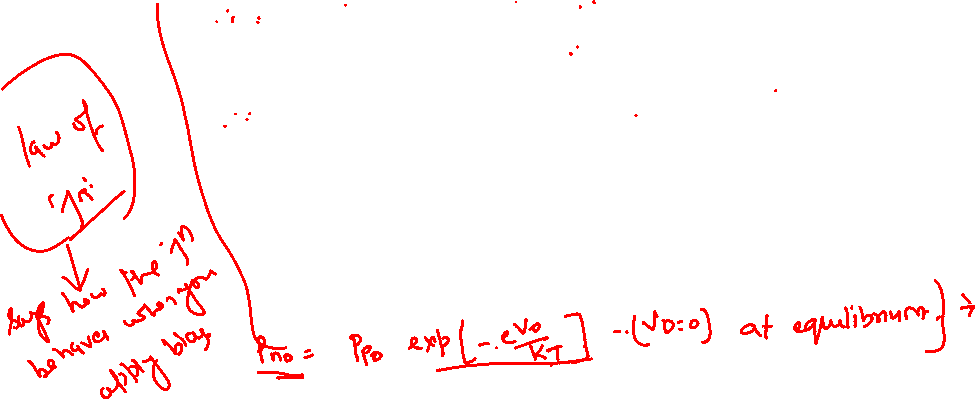 law of
'Jn'
says how the Jn
behaves when you
apply bias
Pno = Ppo exp[-.eVo/KT] -.(VD=0) at equilibrium.} →